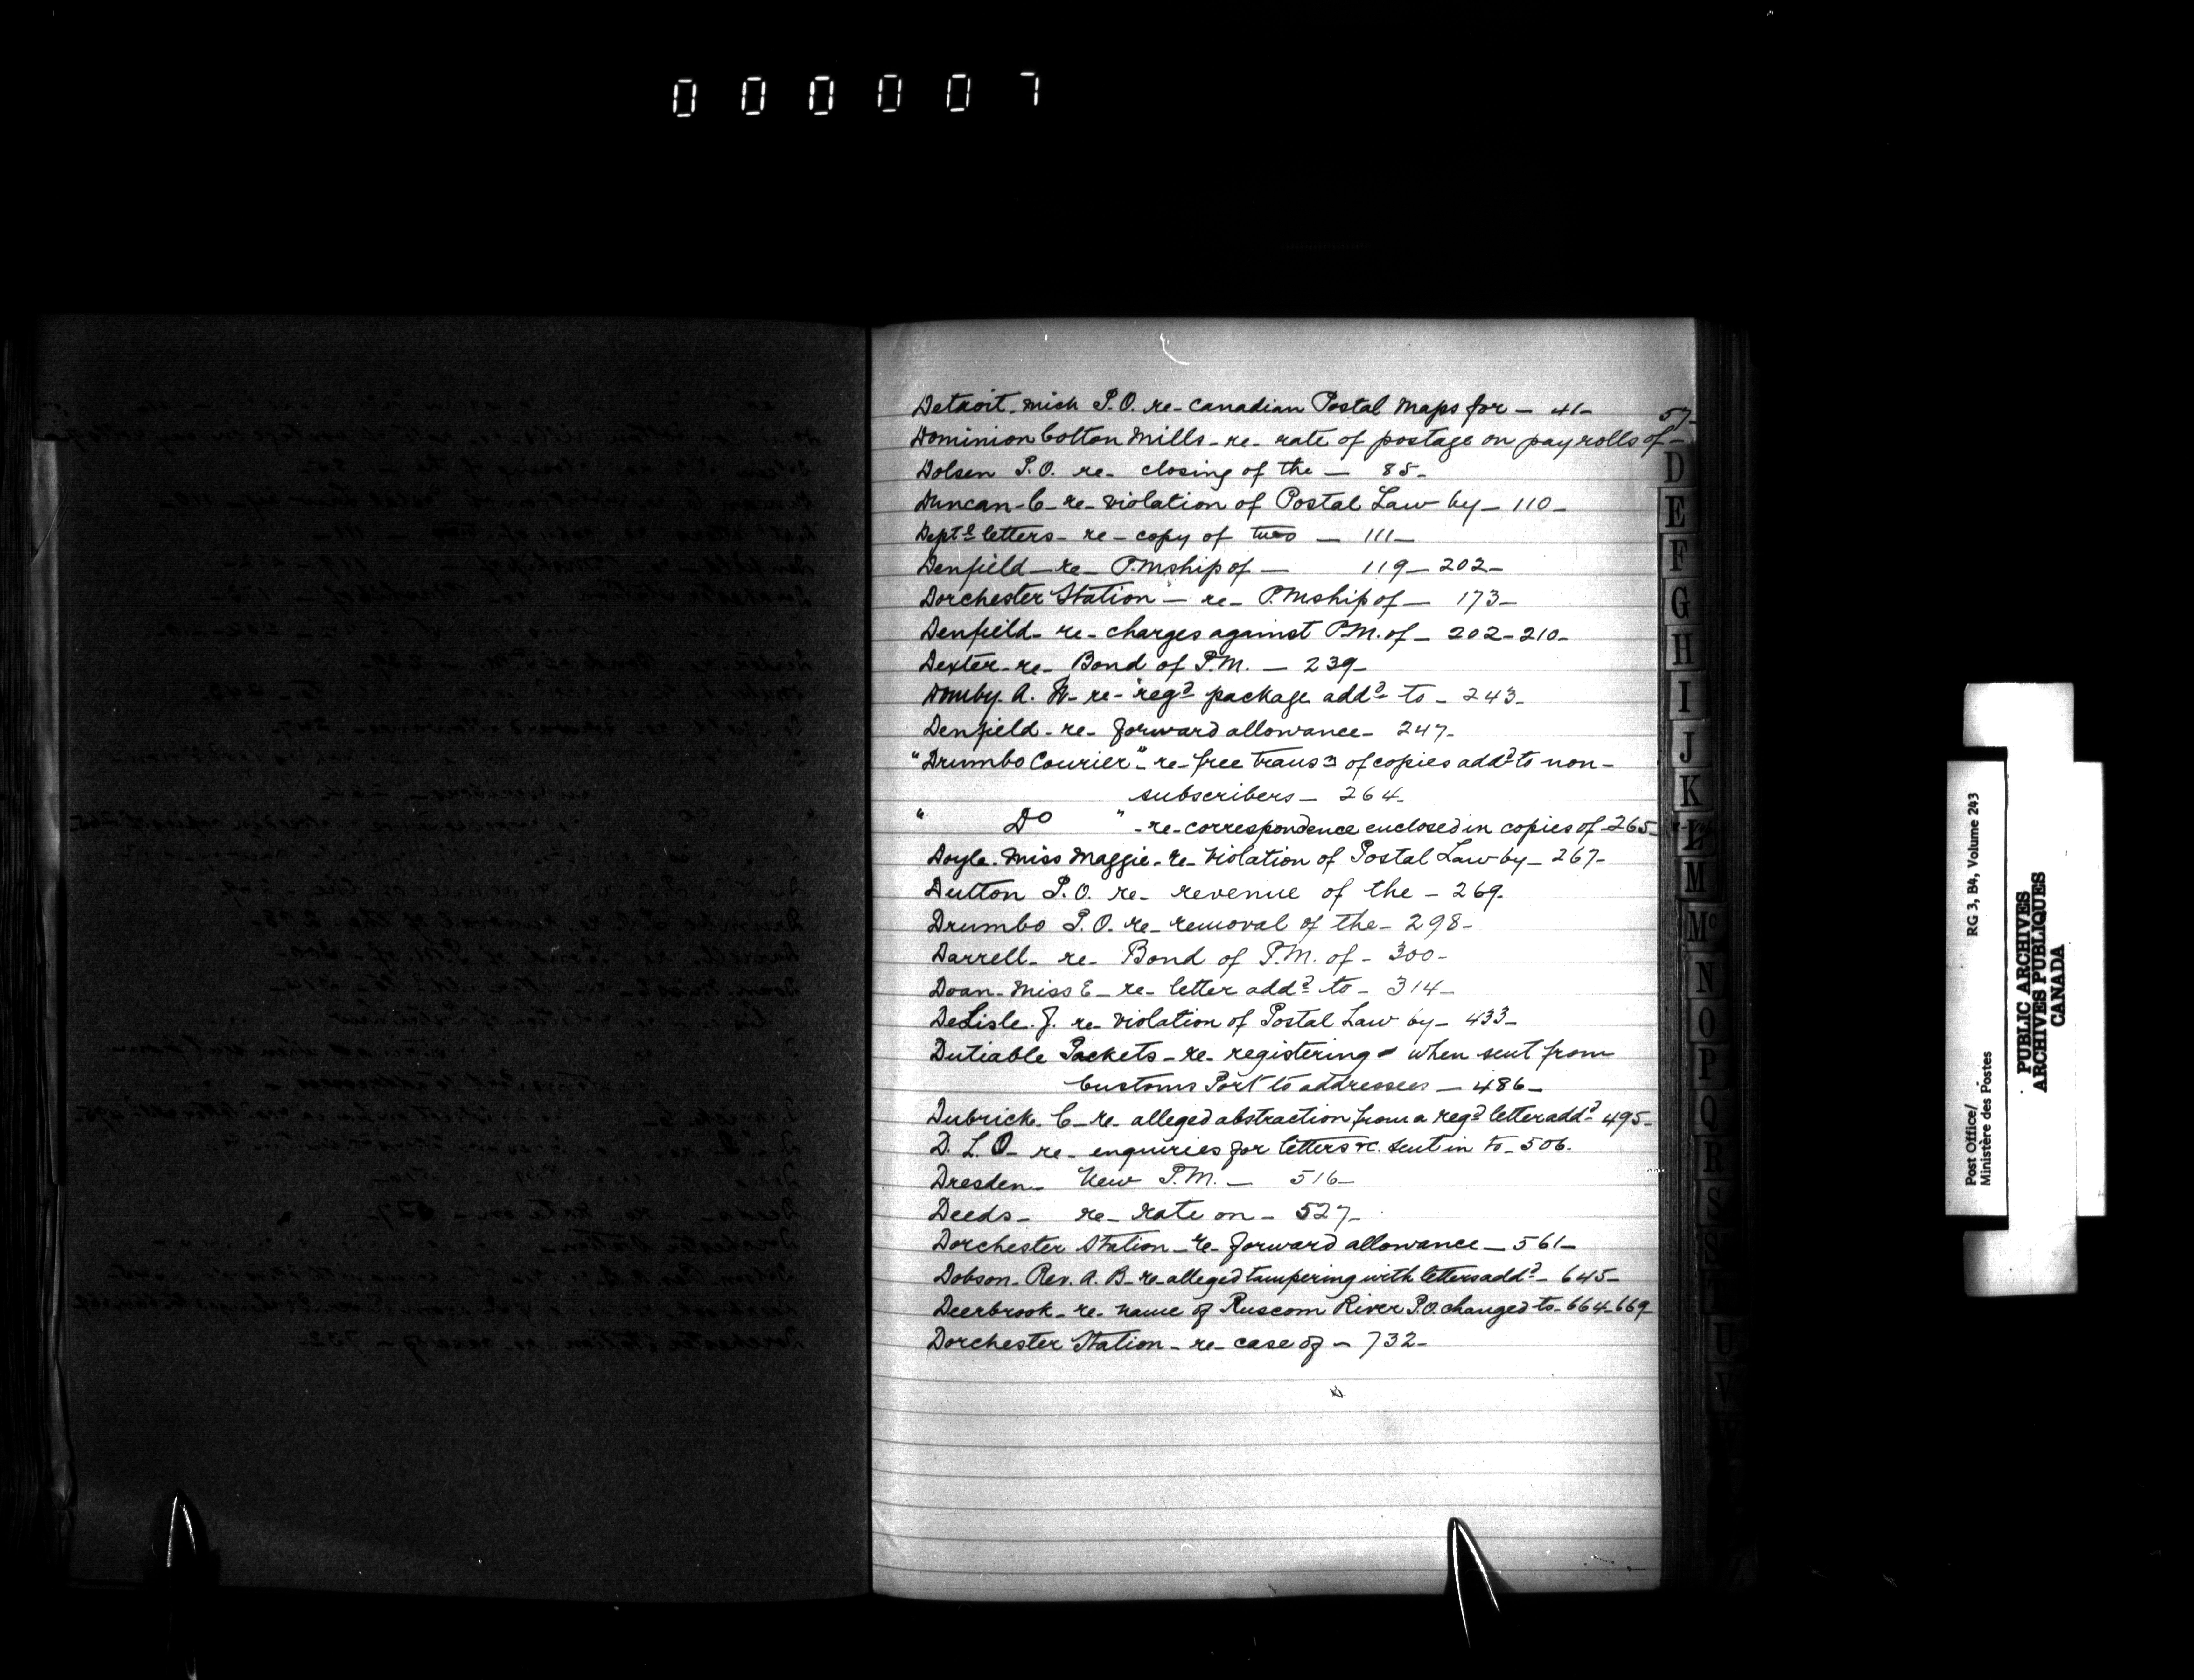 000007
Detroit. Mich P.O. re- Canadian Postal Maps for - 41-
57-
Dominion Cotton Mills- re- rate of postage on pay rolls of -
Dolsen P.O. re- closing of the - 85-
Duncan- C- re- violation of Postal Law by- 110-
Deptl letters- re- copy of two - 111-
Denfield- re- P.Mship of - 119-202-
Dorchester Station - re- P.Mship of - 173-
Denfield- re- charges against P.M. of - 202-210-
Dexter- re- Bond of P.M. - 239-
re- regd package addd to - 243-
Denfield- re- forward allowance- 247-
"Drumbo Courier"- re- free trans of copies addd to non-
subscribers- 264-
" Do " - re- correspondence enclosed in copies of- 265-
Doyle. Miss Maggie- re- Violation of Postal Law by- 267-
Dutton P.O. re- revenue of the - 269-
Drumbo P.O. re- removal of the- 298-
Darrell- re- Bond of P.M. of - 300-
Doan- Miss E- re- letter addd to- 314-
DeLisle. J. re- violation of Postal Law by- 433-
Dutiable Packets- re- registering - when sent from
Customs Port to addressees - 486-
Dubrick. C- re- alleged abstraction from a regd letter addd- 495-
D. L. O- re- enquiries for letters &c. sent in to- 506.
Dresden- New P.M. - 516-
Deeds- re- rate on- 527-
Dorchester Station- re- forward allowance- 561-
Dobson- Rev. A. B- re- alleged tampering with letters addd- 645-
Deerbrook- re- name of Ruscom River P.O. changed to- 664-669-
Dorchester Station- re- case of - 732-
D
E
F
G
H
I
J
K
L
M
Mc
N
O
P
Q
R
S
U
V
Post Office/
Ministère des Postes
RG 3, B4, Volume 243
PUBLIC ARCHIVES
ARCHIVES PUBLIQUES
CANADA